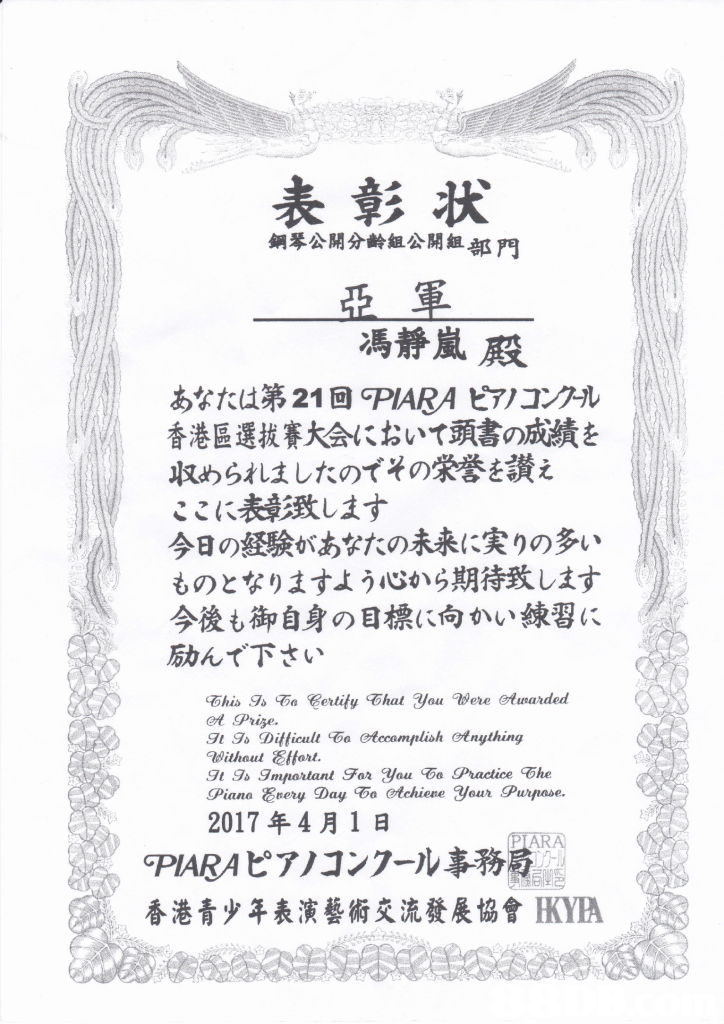 表彰状
鋼琴公開分齡組公開組部門
亞軍
馮靜嵐 殿
あなたは第21回 PIARA ピアノコンクール
香港區選拔賽大会において頭書の成績を
収められましたのでその栄誉を讃え
ここに表彰致します
今日の経験があなたの未来に実りの多い
ものとなりますよう心から期待致します
今後も御自身の目標に向かい練習に
励んで下さい
This Is To Certify That You Were Awarded
A Prize.
It Is Difficult To Accomplish Anything
Without Effort.
It Is Important For You To Practice The
Piano Every Day To Achieve Your Purpose.
2017年4月1日
PIARA
PIARAピアノコンクール事務局
香港青少年表演藝術交流發展協會 HKYPA